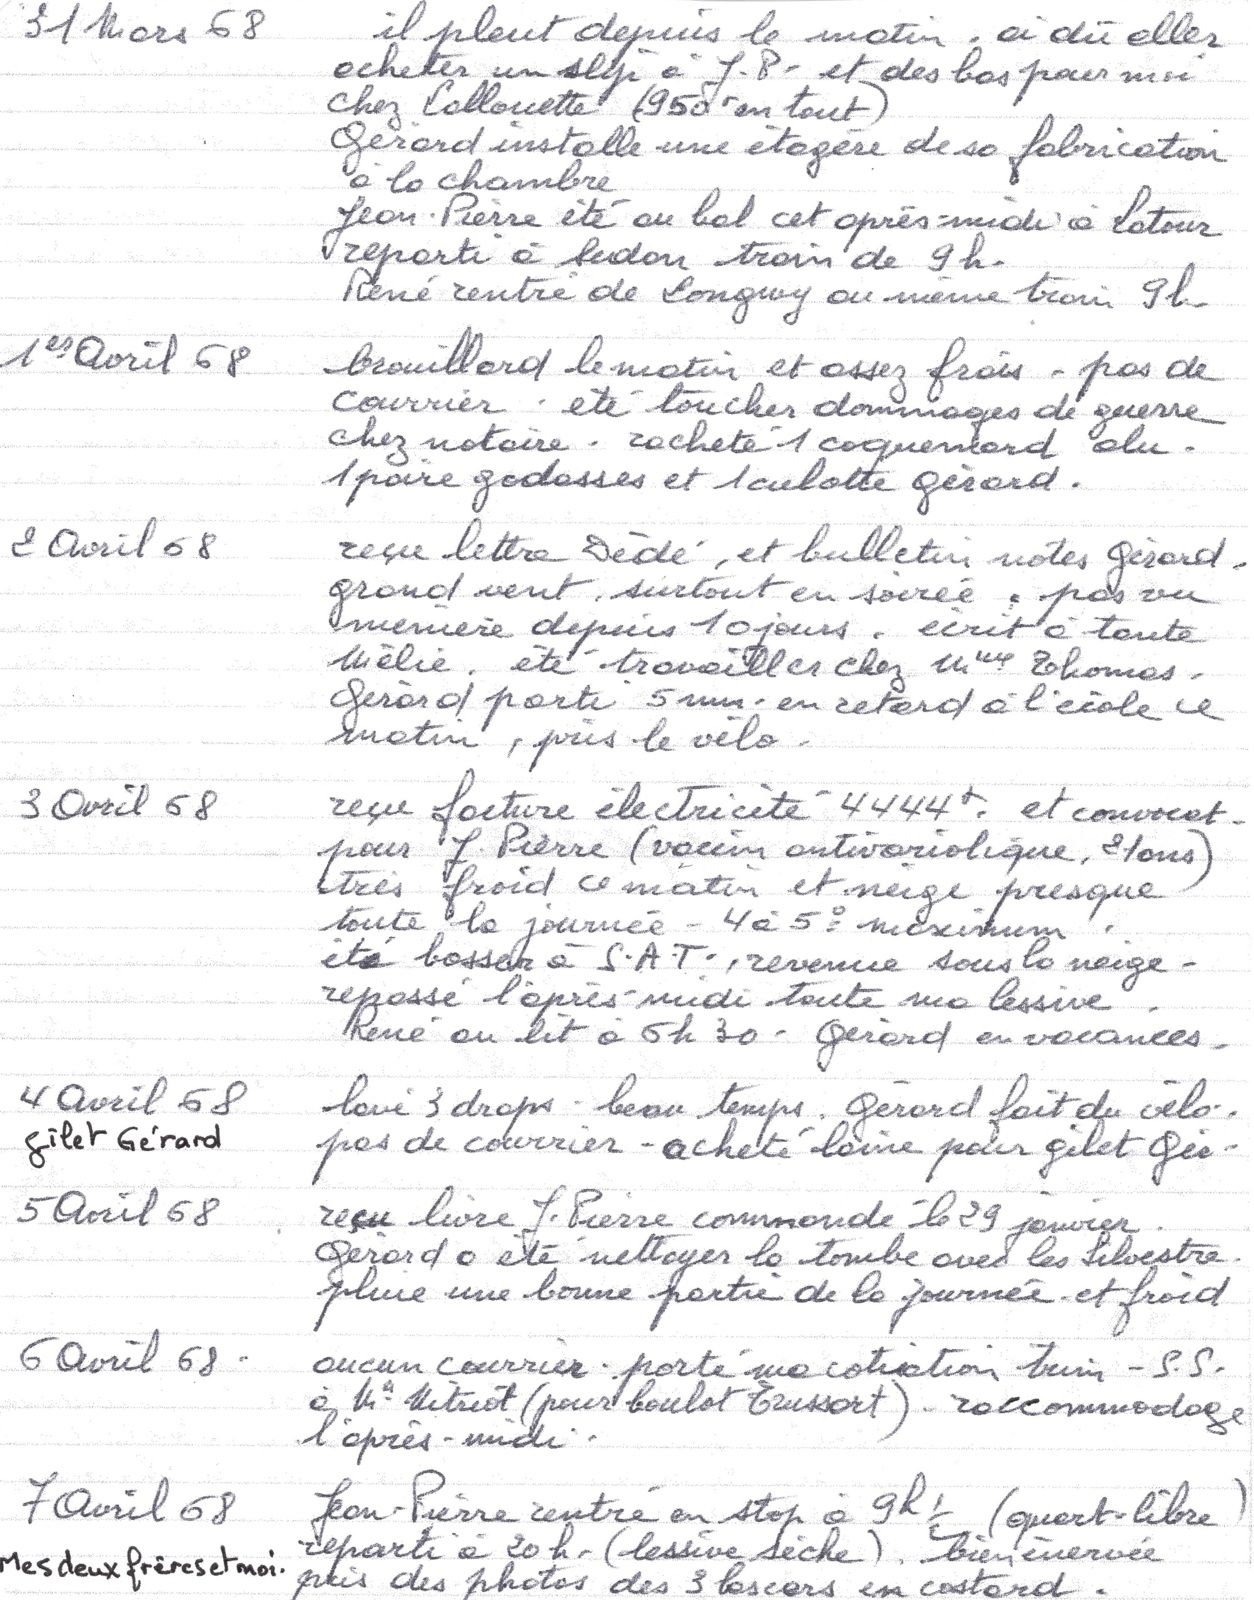 31 Mars 68 il pleut depuis le matin. ai dû aller
acheter un slip à J.P. et des bas pour moi
chez Lallouette (950F en tout)
Gérard installe une étagère de sa fabrication
à la chambre
Jean-Pierre été au bal cet après-midi à Latour
reparti à Sedan train de 9h.
René rentré de Longwy au même train 9h
1er Avril 68 brouillard le matin et assez frais - pas de
courrier. été toucher dommages de guerre
chez notaire. racheté 1 coquemard alu.
1 paire godasses et 1 culotte Gérard.
2 Avril 68 reçu lettre Dédé, et bulletin notes Gérard.
grand vent, surtout en soirée, pas vu
mémère depuis 10 jours. écrit à tante
Mélie. été travailler chez Mme Thomas.
Gérard parti 5 mn. en retard à l'école ce
matin, pris le vélo.
3 Avril 68 reçu facture électricité 4444F. et convocat.
pour J. Pierre (vaccin antivariolique, 21 ans)
très froid ce matin et neige presque
toute la journée - 4 à 5° maximum.
été bosser à S.A.T., revenue sous la neige -
repassé l'après-midi toute ma lessive.
René au lit à 6h30. Gérard en vacances.
4 Avril 68 lavé 3 draps - beau temps. Gérard fait du vélo.
gilet Gérard pas de courrier - acheté laine pour gilet Gér-
5 Avril 68 reçu livre J. Pierre commandé le 29 janvier.
Gérard a été nettoyer la tombe avec les Silvestre.
pluie une bonne partie de la journée et froid
6 Avril 68. aucun courrier. porté ma cotisation trim - S.S.
à (pour boulot Trussart). raccommodage
l'après-midi.
7 Avril 68 Jean-Pierre rentré en stop à 9h 1/2 (quart-libre)
reparti à 20h. (lessive sèche). bien énervée
Mes deux frères et moi. pris des photos des 3 lascars en costard.